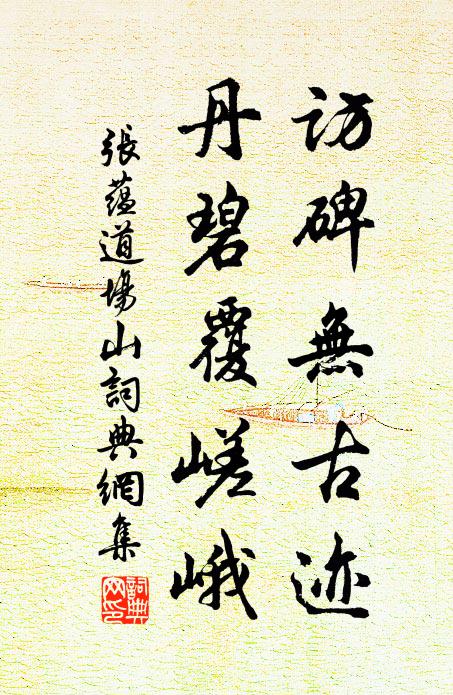 訪碑無古迹
丹碧覆嵯峨
張蘊道場山詞典網集
詞典網印